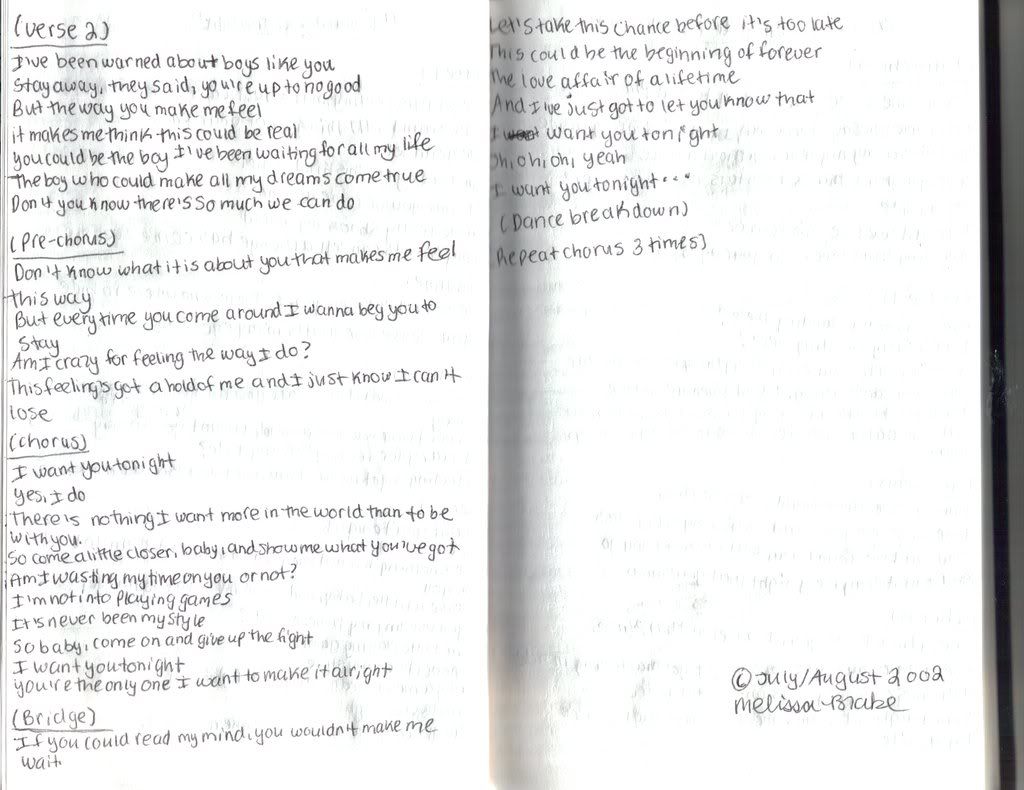 (Verse 2)
I've been warned about boys like you
Stay away, they said, you're up to no good
But the way you make me feel
it makes me think this could be real
you could be the boy I've been waiting for all my life
The boy who could make all my dreams come true
Don't you know there's so much we can do
(Pre-chorus)
Don't know what it is about you that makes me feel
this way
But everytime you come around I wanna beg you to
Stay
Am I crazy for feeling the way I do?
This feeling's got a hold of me and I just know I can't
lose
(Chorus)
I want you tonight
Yes, I do
There is nothing I want more in the world than to be
with you.
So come a little closer, baby, and show me what you've got
Am I wasting my time on you or not?
I'm not into playing games
It's never been my style
So baby, come on and give up the fight
I want you tonight
You're the only one I want to make it alright
(Bridge)
If you could read my mind, you wouldn't make me
wait
Let's take this chance before it's too late
This could be the beginning of forever
The love affair of a lifetime
And I've just got to let you know that
I want you tonight
Oh, oh, oh, yeah
I want you tonight...
(Dance breakdown)
Repeat chorus 3 times)
© July/August 2002
Melissa